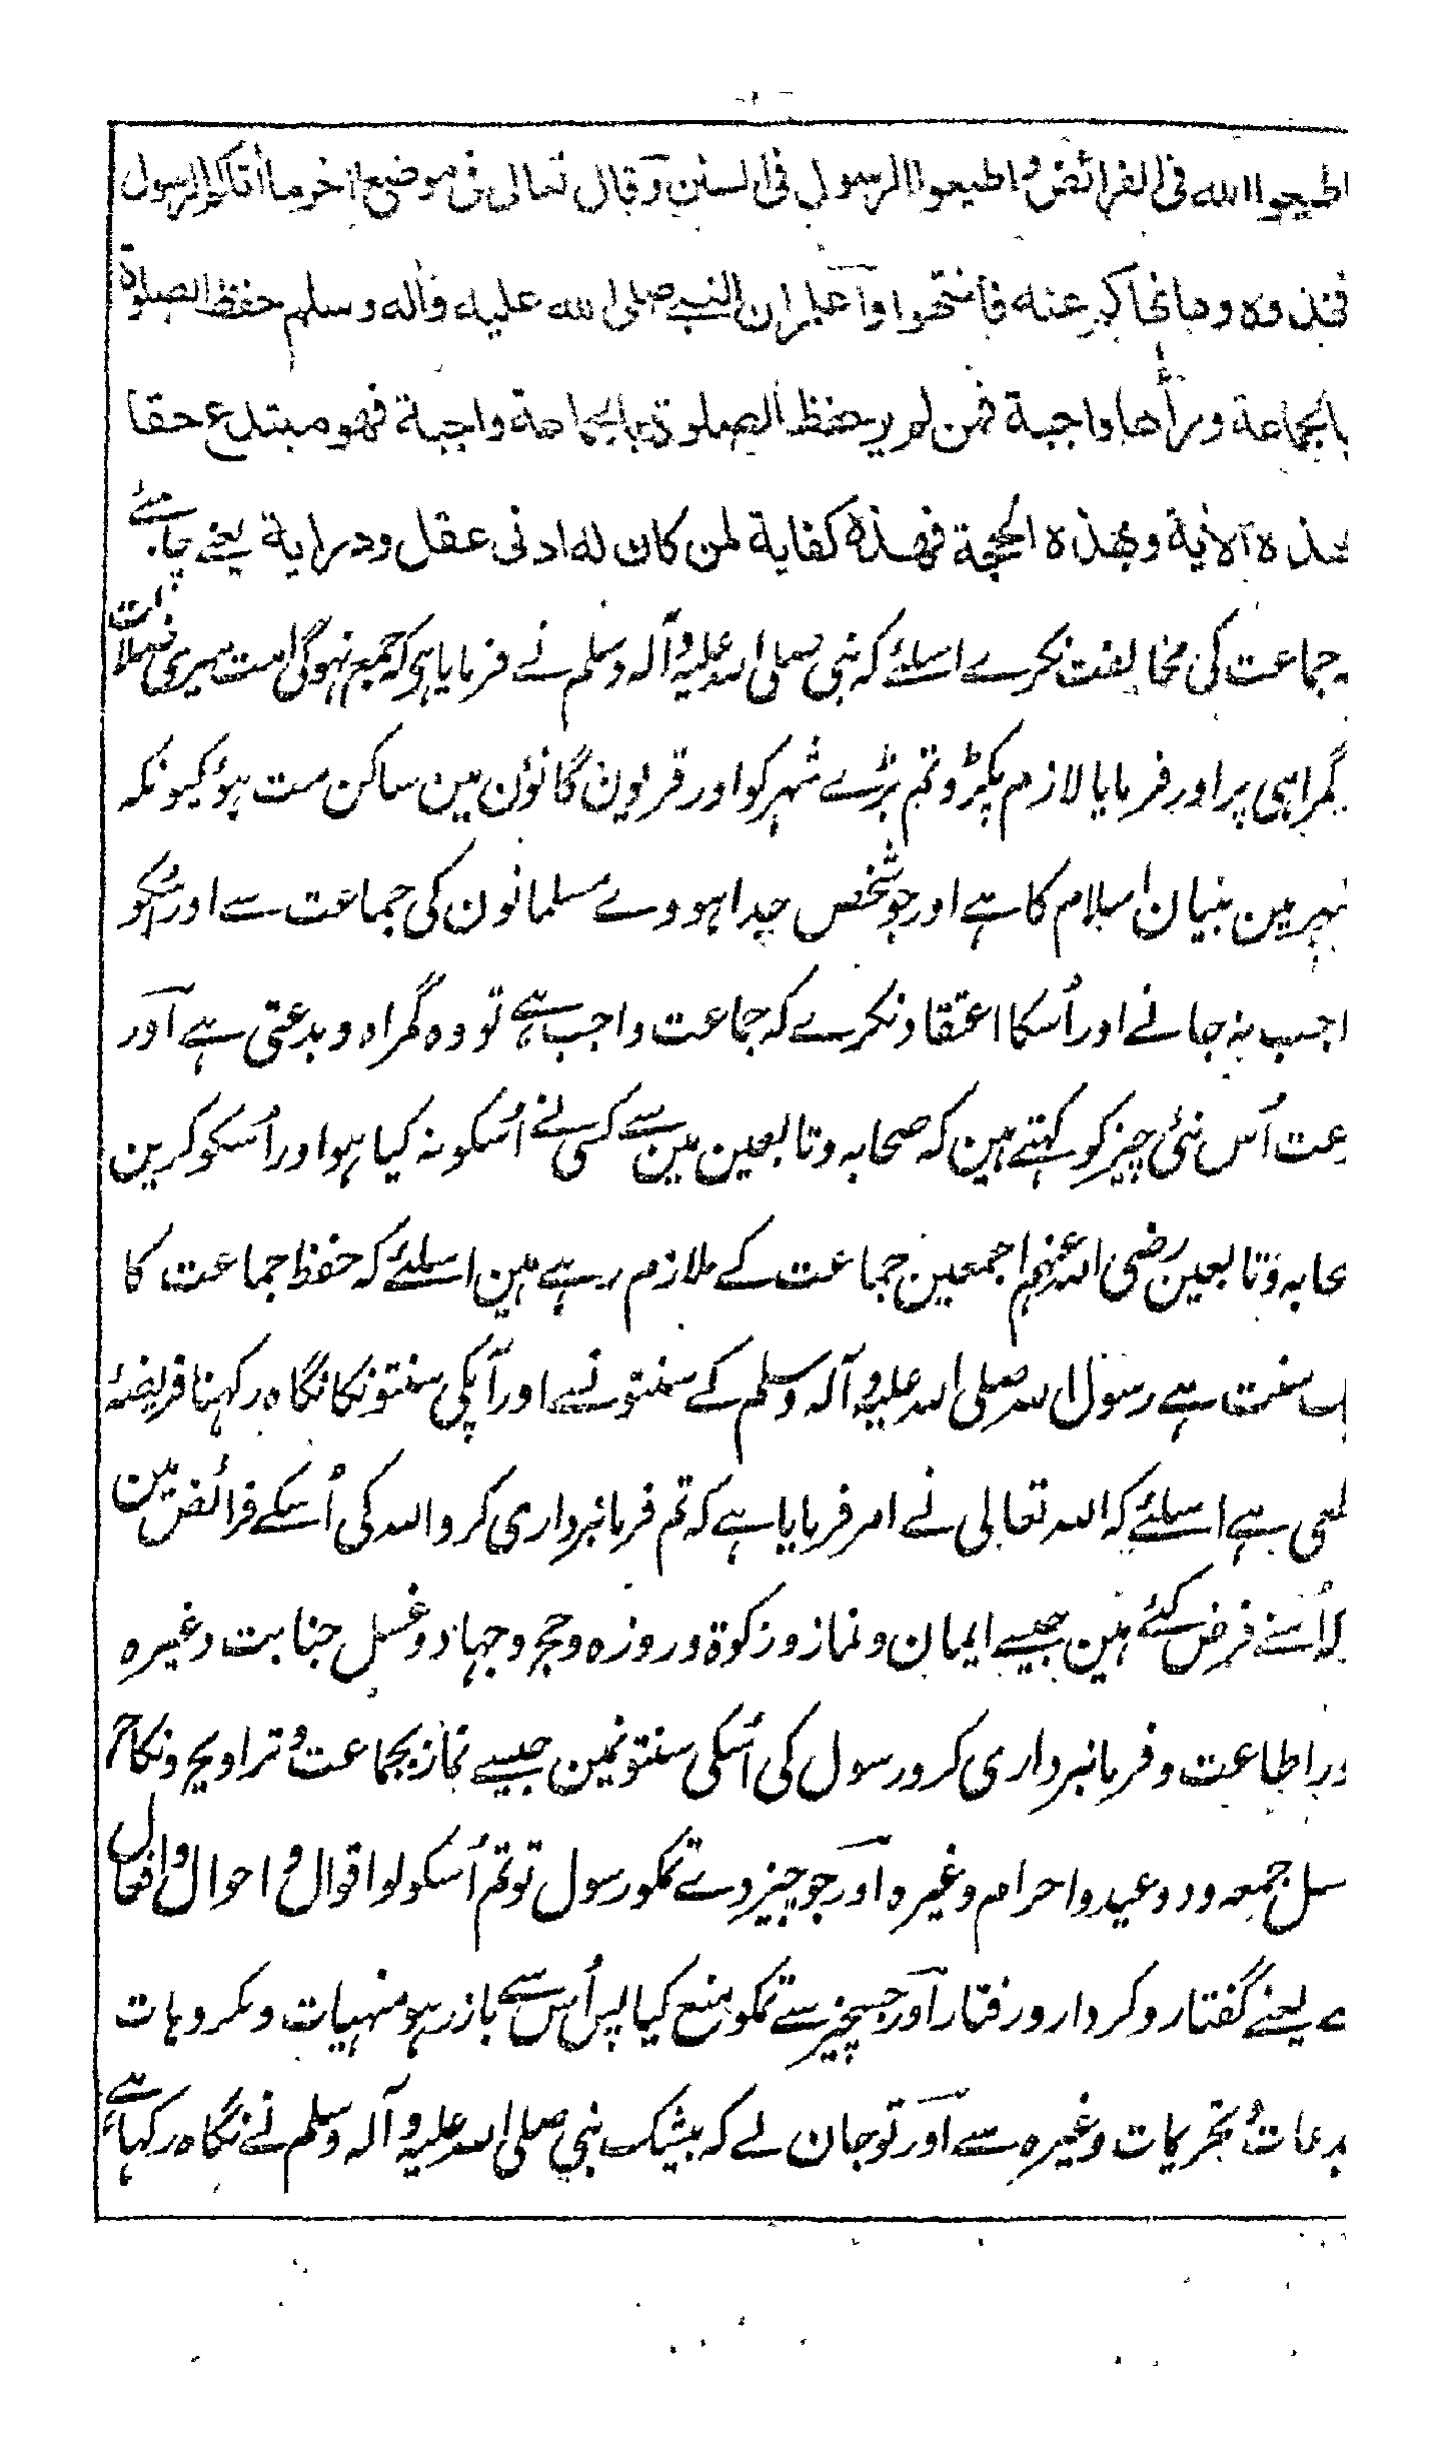 اطیعوا الله فی الفرائض و اطیعوا الرسول فی السنن وقال تعالی فی موضع اخر ما اتاکم الرسول
فخذوه وما نهاکم عنه فانتهوا واعلم ان النبی صلی الله علیه واله وسلم حفظ الصلوة
بالجماعة ورأها واجبة فمن لم یر حفظ الصلوة بالجماعة واجبة فهو مبتدع حقا
بهذه الآیة وبهذه الحجة فهذه کفایة لمن کان له ادنی عقل ودرایة یعنے چاہئے
کہ جماعت کی مخالفت نکرے اسلئے کہ نبی صلی اللہ علیہ وآلہ وسلم نے فرمایا ہی کہ جمع نہوگی امت میری ضلالت
گمراہی پر اور فرمایا لازم پکڑو تم بڑے شہر کو اور قریون گانؤن مین ساکن مت ہوئو کیونکہ
شہر مین بنیان اسلام کا ہے اور جو شخص جدا ہووے مسلمانون کی جماعت سے اور اسکو
اجب نہ جانے اور اُسکا اعتقاد نکرے کہ جماعت واجب ہے تو وہ گمراہ و بدعتی ہے آور
دعت اُس نئی چیز کو کہتے ہین کہ صحابہ و تابعین مین سے کسی نے اُسکو نہ کیا ہو اور اُسکو کرین
حابہ و تابعین رضی اللہ عنہم اجمعین جماعت کے ملازم رہے ہین اسلئے کہ حفظ جماعت کا
سنت ہے رسول اللہ صلی اللہ علیہ وآلہ وسلم کے سنتونسے اور آپکی سنتونکا نگاہ رکہنا فریضۂ
ہے اسلئے کہ اللہ تعالی نے امر فرمایا ہے کہ تم فرمانبرداری کرو اللہ کی اُسکے فرائض مین
اُسنے فرض کئے ہین جیسے ایمان و نماز و زکوة و روزہ و حج و جہاد و غسل جنابت وغیرہ
ور اطاعت و فرمانبرداری کرو رسول کی اُسکی سنتونمین جیسے نماز بجماعت و تراویح و نکاح
سل جمعہ و دو عید و احرام وغیرہ آور جو چیز دے تمکو رسول تو تم اُسکو لو اقوال و احوال و افعال
ے یعنے گفتار و کردار و رفتار آور جسچیز سے تمکو منع کیا پس اُس سے باز رہو منہیات و مکروہات
بدعات و تحریمات وغیرہ سے آور تو جان لے کہ بیشک نبی صلی اللہ علیہ وآلہ وسلم نے نگاہ رکہا ہے